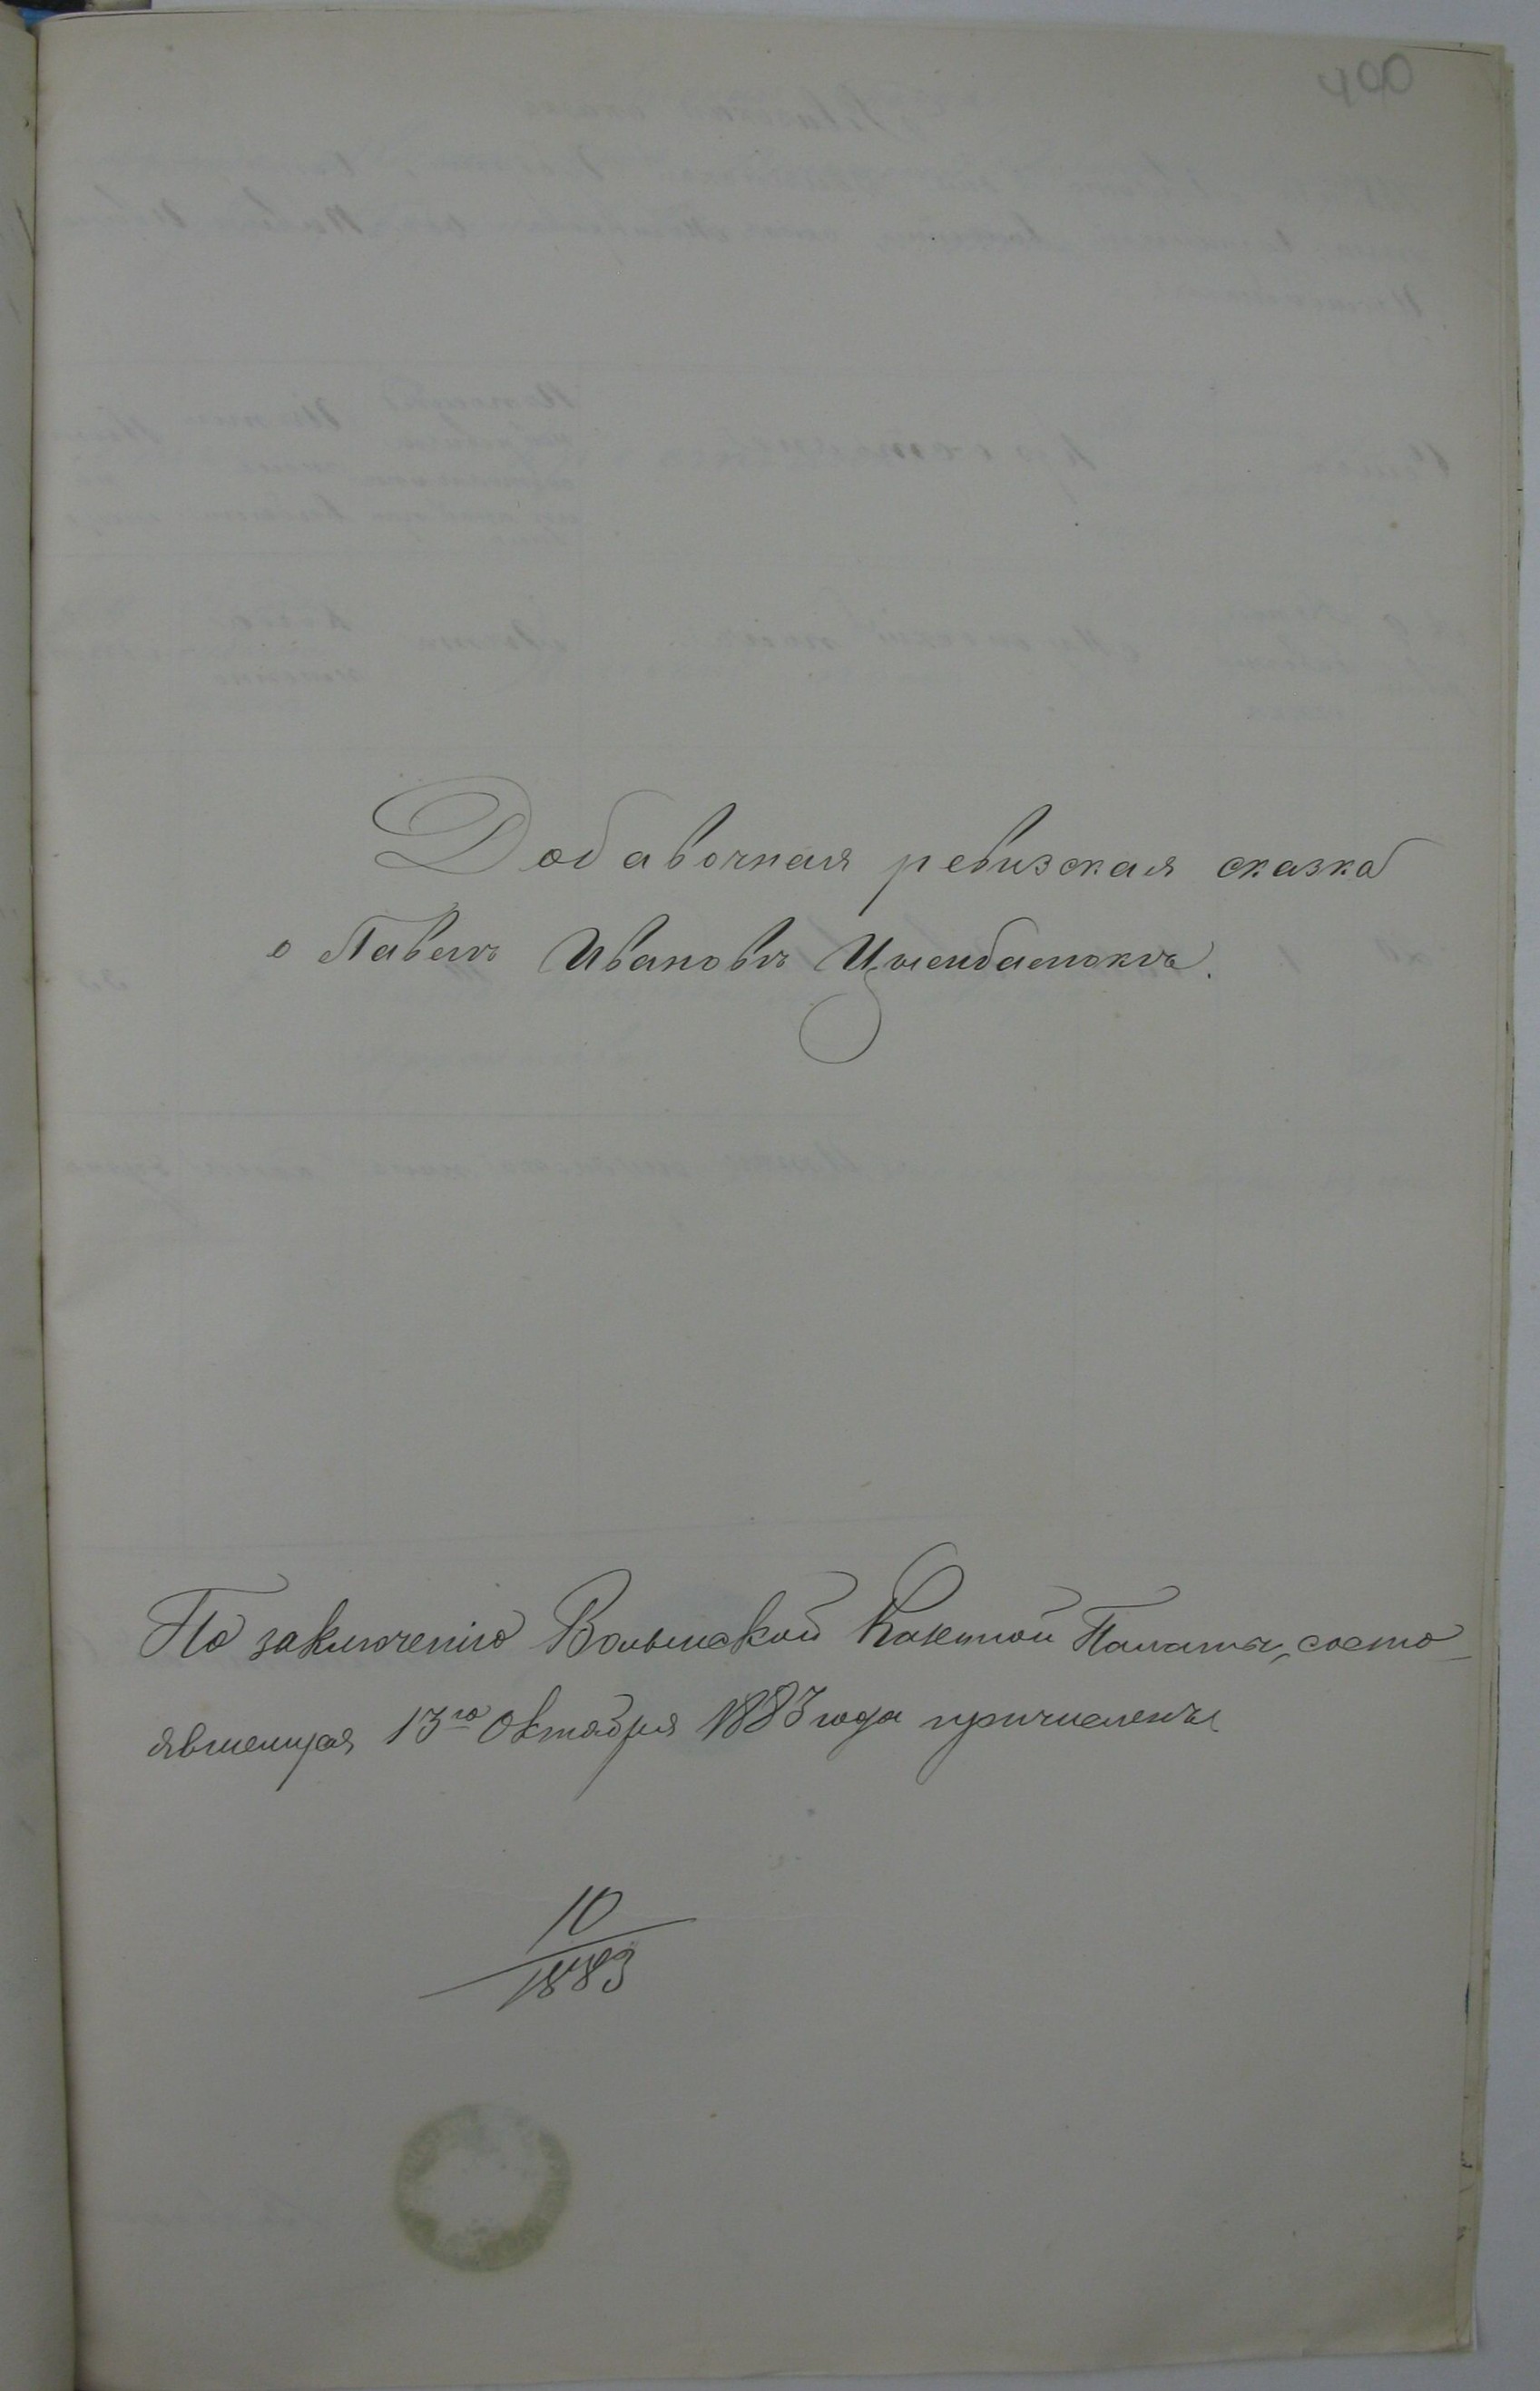 400
Добавочная ревизская сказка
о Павелѣ Ивановѣ Цымбалюкѣ.
По заключенію Волынской Казенной Палаты, состо-
явшемуся 13го Октября 1883 года причисленъ
10
1883